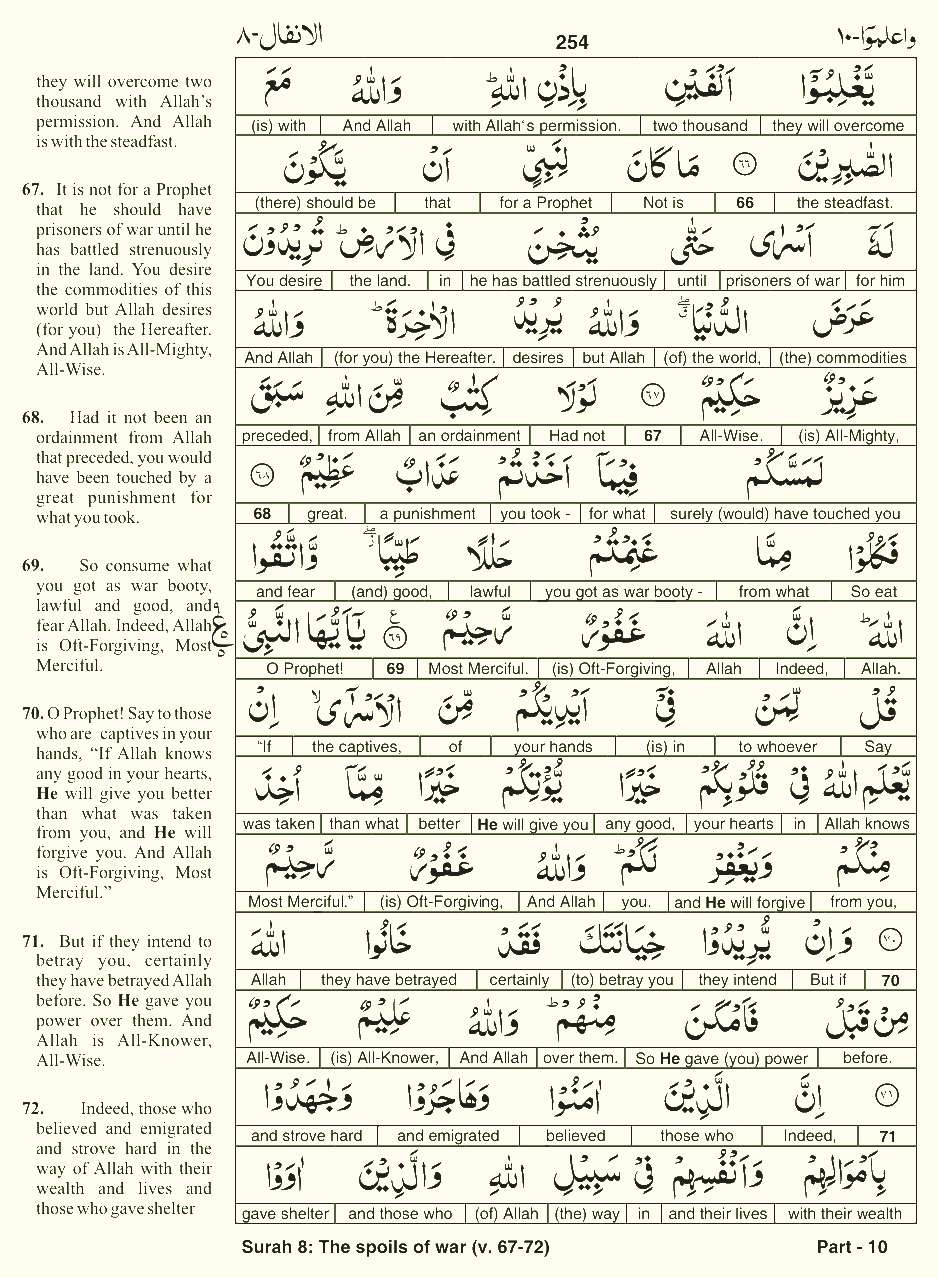 الانفال-٨
254
واعلموٓا-١٠
they will overcome two
thousand with Allah's
permission. And Allah
is with the steadfast.
67. It is not for a Prophet
that he should have
prisoners of war until he
has battled strenuously
in the land. You desire
the commodities of this
world but Allah desires
(for you) the Hereafter.
And Allah is All-Mighty,
All-Wise.
68. Had it not been an
ordainment from Allah
that preceded, you would
have been touched by a
great punishment for
what you took.
69. So consume what
you got as war booty,
lawful and good, and
fear Allah. Indeed, Allah
is Oft-Forgiving, Most
Merciful.
70. O Prophet! Say to those
who are captives in your
hands, “If Allah knows
any good in your hearts,
He will give you better
than what was taken
from you, and He will
forgive you. And Allah
is Oft-Forgiving, Most
Merciful.”
71. But if they intend to
betray you, certainly
they have betrayed Allah
before. So He gave you
power over them. And
Allah is All-Knower,
All-Wise.
72. Indeed, those who
believed and emigrated
and strove hard in the
way of Allah with their
wealth and lives and
those who gave shelter
يَّغْلِبُوْٓا اَلْفَيْنِ بِاِذْنِ اللّٰهِ ؕ وَاللّٰهُ مَعَ
they will overcome two thousand with Allah‘s permission. And Allah (is) with
الصّٰبِرِيْنَ ﴿٦٦﴾ مَا كَانَ لِنَبِيٍّ اَنْ يَّكُوْنَ
the steadfast. 66 Not is for a Prophet that (there) should be
لَهٗٓ اَسْرٰى حَتّٰى يُثْخِنَ فِي الْاَرْضِ ؕ تُرِيْدُوْنَ
for him prisoners of war until he has battled strenuously in the land. You desire
عَرَضَ الدُّنْيَا ۖ وَاللّٰهُ يُرِيْدُ الْاٰخِرَةَ ؕ وَاللّٰهُ
(the) commodities (of) the world, but Allah desires (for you) the Hereafter. And Allah
عَزِيْزٌ حَكِيْمٌ ﴿٦٧﴾ لَوْلَا كِتٰبٌ مِّنَ اللّٰهِ سَبَقَ
(is) All-Mighty, All-Wise. 67 Had not an ordainment from Allah preceded,
لَمَسَّكُمْ فِيْمَآ اَخَذْتُمْ عَذَابٌ عَظِيْمٌ ﴿٦٨﴾
surely (would) have touched you for what you took - a punishment great. 68
فَكُلُوْا مِمَّا غَنِمْتُمْ حَلٰلًا طَيِّبًا ۖ وَّاتَّقُوا
So eat from what you got as war booty - lawful (and) good, and fear
اللّٰهَ ؕ اِنَّ اللّٰهَ غَفُوْرٌ رَّحِيْمٌ ﴿٦٩﴾ ع يٰٓاَيُّهَا النَّبِيُّ
Allah. Indeed, Allah (is) Oft-Forgiving, Most Merciful. 69 O Prophet!
قُلْ لِّمَنْ فِيْٓ اَيْدِيْكُمْ مِّنَ الْاَسْرٰٓى ۙ اِنْ
Say to whoever (is) in your hands of the captives, “If
يَّعْلَمِ اللّٰهُ فِيْ قُلُوْبِكُمْ خَيْرًا يُّؤْتِكُمْ خَيْرًا مِّمَّآ اُخِذَ
Allah knows in your hearts any good, He will give you better than what was taken
مِنْكُمْ وَيَغْفِرْ لَكُمْ ؕ وَاللّٰهُ غَفُوْرٌ رَّحِيْمٌ
from you, and He will forgive you. And Allah (is) Oft-Forgiving, Most Merciful.”
﴿٧٠﴾ وَاِنْ يُّرِيْدُوْا خِيَانَتَكَ فَقَدْ خَانُوا اللّٰهَ
70 But if they intend (to) betray you certainly they have betrayed Allah
مِنْ قَبْلُ فَاَمْكَنَ مِنْهُمْ ؕ وَاللّٰهُ عَلِيْمٌ حَكِيْمٌ
before. So He gave (you) power over them. And Allah (is) All-Knower, All-Wise.
﴿٧١﴾ اِنَّ الَّذِيْنَ اٰمَنُوْا وَهَاجَرُوْا وَجٰهَدُوْا
71 Indeed, those who believed and emigrated and strove hard
بِاَمْوَالِهِمْ وَاَنْفُسِهِمْ فِيْ سَبِيْلِ اللّٰهِ وَالَّذِيْنَ اٰوَوْا
with their wealth and their lives in (the) way (of) Allah and those who gave shelter
Surah 8: The spoils of war (v. 67-72)
Part - 10